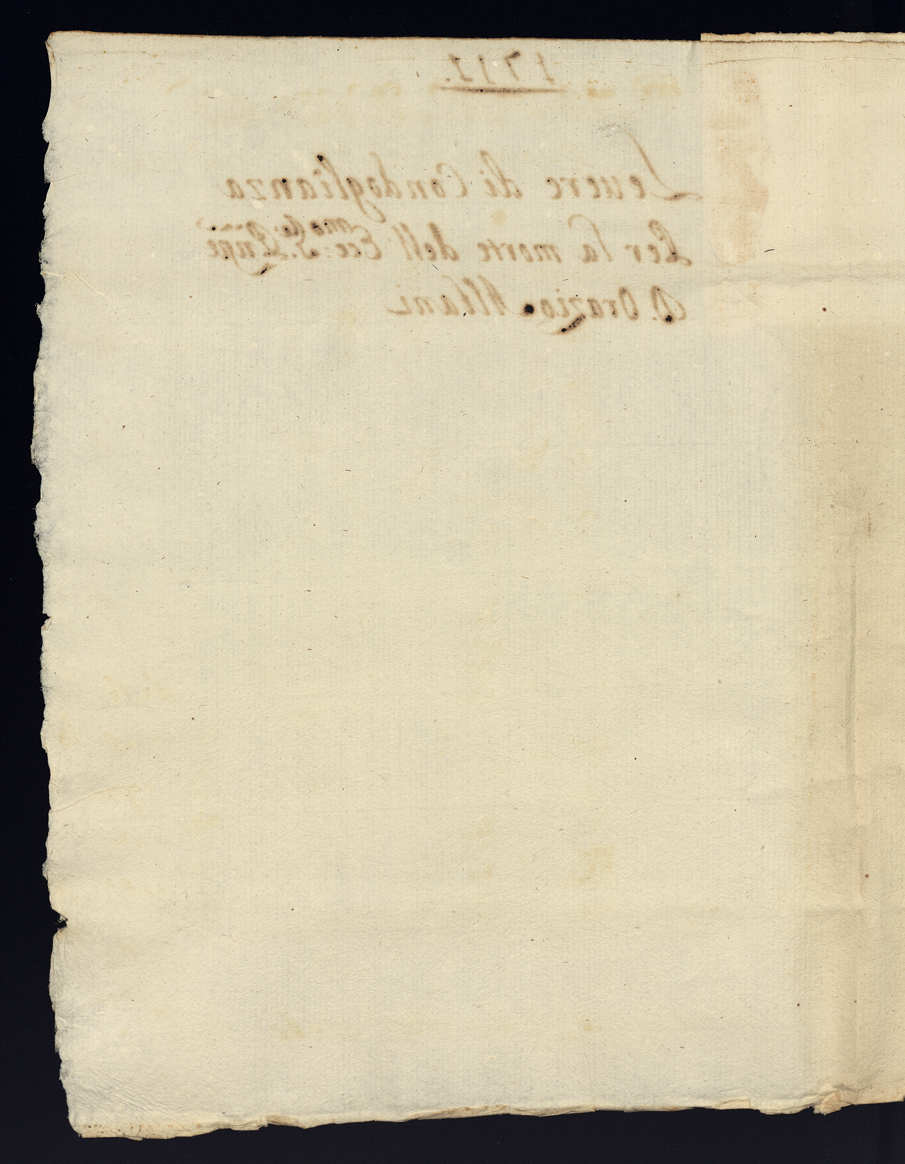 1712.
Lettere di Condoglianza
Per la morte dell' Ecc:mo Sig:
D. Orazio Albani